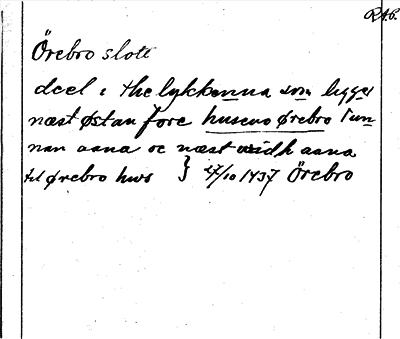 R46.
Örebro slott
deel i the lykkenna som ligger
næst østan fore husens ørebro sun-
nan aana oc næst widh aana
til ørebro hws } 27/10 1437 Örebro